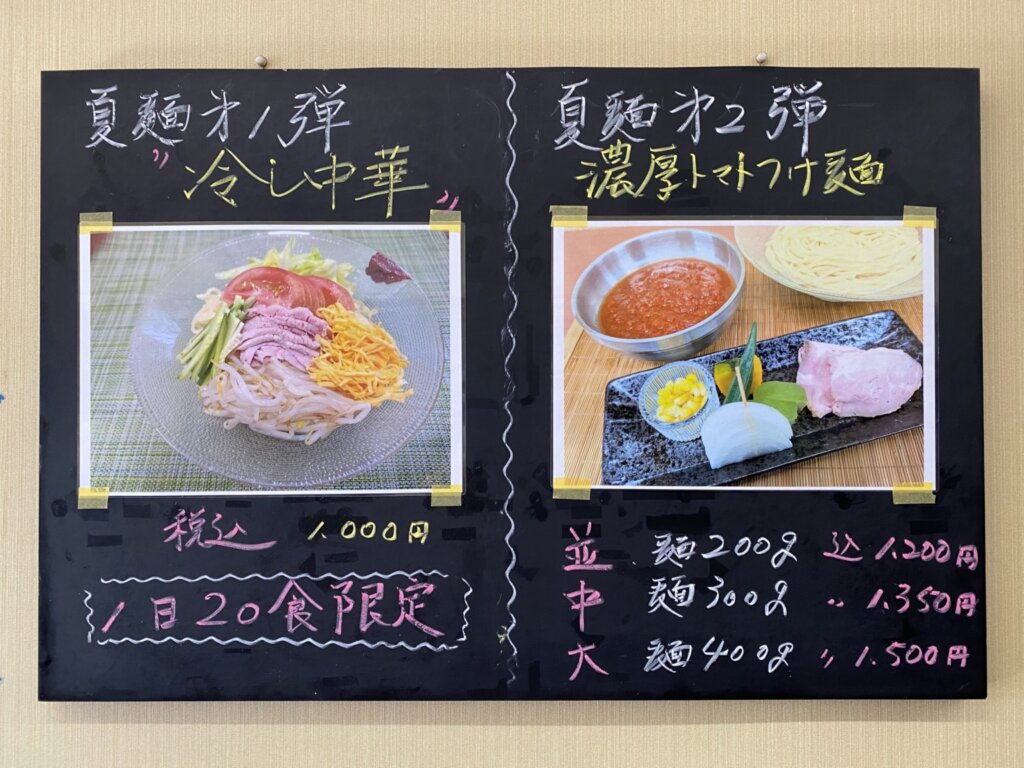 夏麺才1弾
"冷し中華"
税込 1.000円
1日20食限定
夏麺才2弾
濃厚トマトつけ麺
並 麺200g 込 1.200円
中 麺300g 〃 1.350円
大 麺400g 〃 1.500円